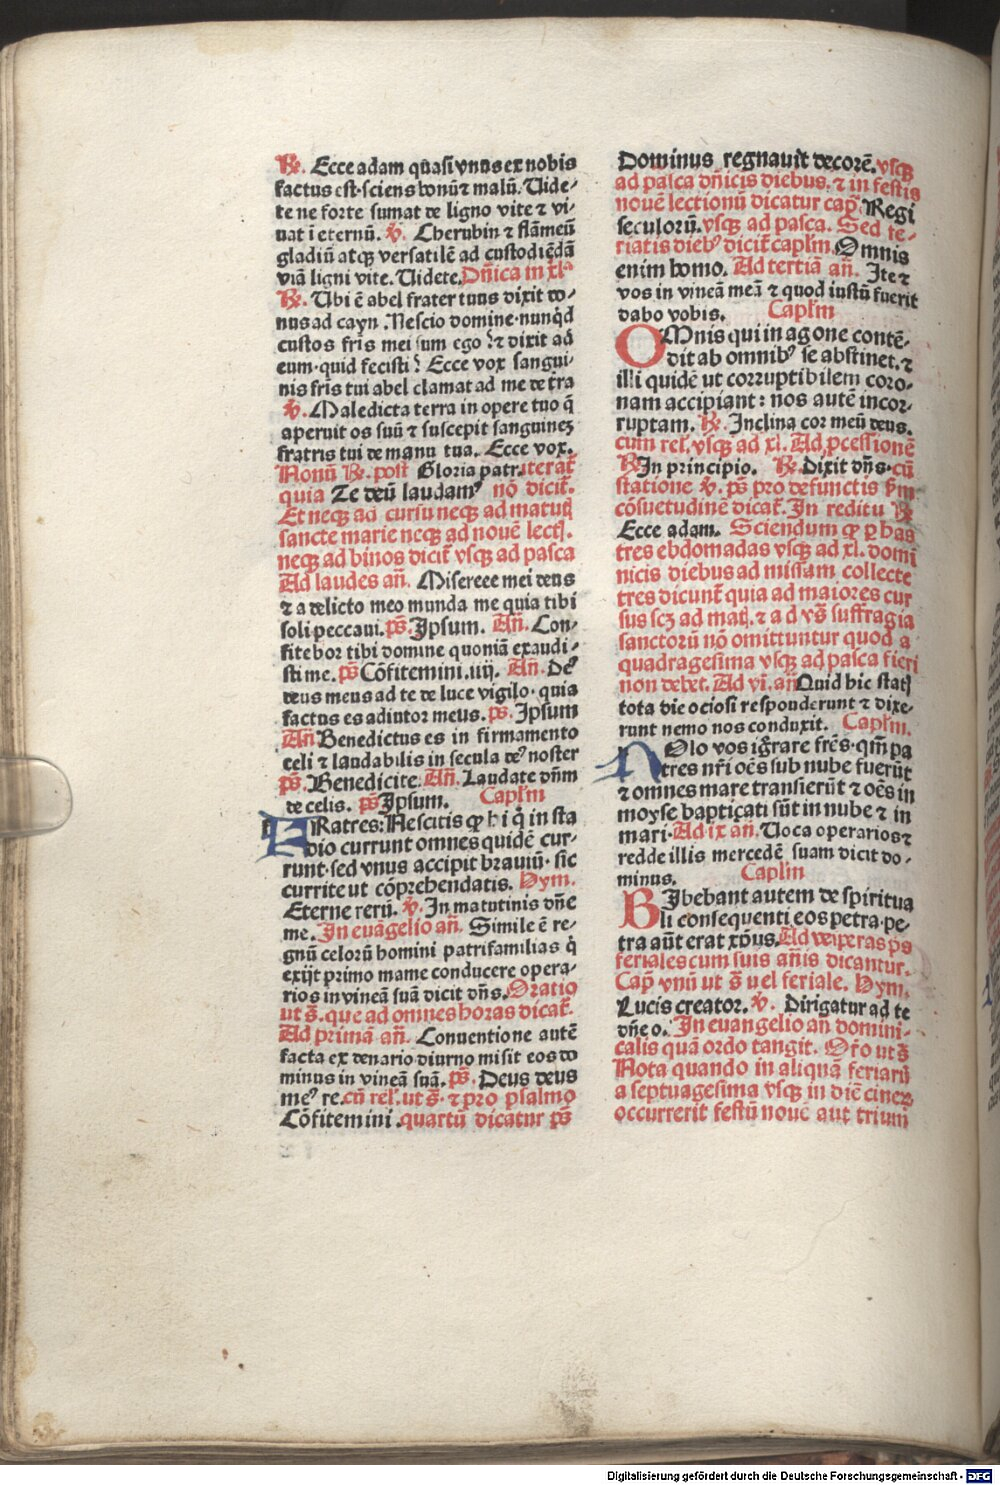 ℟. Ecce adam quasi vnus ex nobis
factus est·sciens bonū ⁊ malū. Uide⸗
te ne forte sumat de ligno vite ⁊ vi⸗
uat ī eternū. ℣. Cherubin ⁊ flāmeū
gladiū atqꝫ versatilē ad custodiēdā
viā ligni vite. Uidete. Dñica in xl͛ᵃ
℟. Ubi ē abel frater tuus dixit do⸗
nus ad cayn. Nescio domine·nunqͥd
custos fr̄is mei sum ego ⁊ dixit ad
eum·quid fecisti? Ecce vox sangui⸗
nis fr̄is tui abel clamat ad me de tr̄a
℣. Maledicta terra in opere tuo q̄
aperuit os suū ⁊ suscepit sanguineꝫ
fratris tui de manu tua. Ecce vox.
Nonū ℟. post Gloria patr. iterat᷑
quia Te deū laudamꝰ nō dicit᷑.
Et neqꝫ ad cursū neqꝫ ad matutꝭ
sancte marie neqꝫ ad nouē lectꝭ.
neqꝫ ad binos dicit᷑ vsqꝫ ad pasca
Ad laudes añ. Misereee mei deus
⁊ a delicto meo munda me quia tibi
soli peccaui. p̄s. Ipsum. Añ. Con⸗
fitebor tibi domine quoniā exaudi⸗
sti me. p̄s Cōfitemini.iiij. Añ. Deꝰ
deus meus ad te de luce vigilo·quia
factus es adiutor meus. p̄s. Ipsum
Añ Benedictus es in firmamento
celi ⁊ laudabilis in secula deꝰ noster
p̄s. Benedicite. Añ. Laudate dñm
de celis. p̄s Ipsum. Capl̄m
FRatres: Nescitis ꝙ hi qͥ in sta
dio currunt omnes quidē cur⸗
runt·sed vnus accipit brauiū· sic
currite ut cōprehendatis. Hym.
Eterne rerū. ℣. In matutinis dñe
me. In euāgelio añ. Simile ē re⸗
gnū celorū homini patrifamilias qͥ
exijt primo mame conducere opera⸗
rios in vineā suā dicit dñs. Oratio
ut s̄. que ad omnes horas dicat᷑.
Ad primā añ. Conuentione autē
facta ex denario diurno misit eos do
minus in vineā suā. p̄s. Deus deus
meꝰ re. cū rel̄. ut s̄. ⁊ pro psalmo
Cōfitemini. quartū dicatur p̄s
Dominus regnauit decorē. vsqꝫ
ad pasca dñicis diebus. ⁊ in festis
nouē lectionū dicatur cap̄. Regi
seculorū. vsqꝫ ad pasca. Sed fe⸗
riatis diebꝰ dicit᷑ capl̄m. Omnis
enim homo. Ad tertiā añ. Ite ⁊
vos in vineā meā ⁊ quod iustū fuerit
dabo vobis. Capl̄m
OMnis qui in agone contē⸗
dit ab omnibꝰ se abstinet. ⁊
illi quidē ut corruptibilem coro⸗
nam accipiant: nos autē incor⸗
ruptam. ℟. Inclina cor meū deus.
cum rel̄. vsqꝫ ad xl. Ad ꝓcessionē
℟ In principio. ℟. Dixit dñs·cū
statione ℣. p̄s pro defunctis p̄m
cōsuetudinē dicat᷑. In reditu ℟
Ecce adam. Sciendum ꝙ ꝑ has
tres ebdomadas vsqꝫ ad xl. domi
nicis diebus ad missam collecte
tres dicunt᷑ quia ad maiores cur
sus scꝫ ad matꝭ. ⁊ ad vs̄ suffragia
sanctorū nō omittuntur quod a
quadragesima vsqꝫ ad pasca fieri
non debet. Ad vi. añ Quid hic statꝭ
tota die ociosi responderunt ⁊ dixe⸗
runt nemo nos conduxit. Capl̄m.
NOlo vos igr̄are fr̄es·qm̄ pa
tres nr̄i oēs sub nube fuerūt
⁊ omnes mare transierūt ⁊ oēs in
moyse bapticati sūt in nube ⁊ in
mari· Ad ix añ. Uoca operarios ⁊
redde illis mercedē suam dicit do⸗
minus. Capl̄m
BIbebant autem de spiritua
li consequenti eos petra·pe⸗
tra aūt erat xp̄us. Ad vesperas p̄s
feriales cum suis añis dicantur.
Cap̄ vnū ut s̄ uel feriale. Hym.
Lucis creator. ℣. Dirigatur ad te
dñe o. In euangelio añ domini⸗
calis quā ordo tangit. Or̄o ut s̄
Nota quando in aliquā feriarū
a septuagesima vsqꝫ in diē cineꝝ
occurrerit festū nouē aut trium
Digitalisierung gefördert durch die Deutsche Forschungsgemeinschaft - DFG